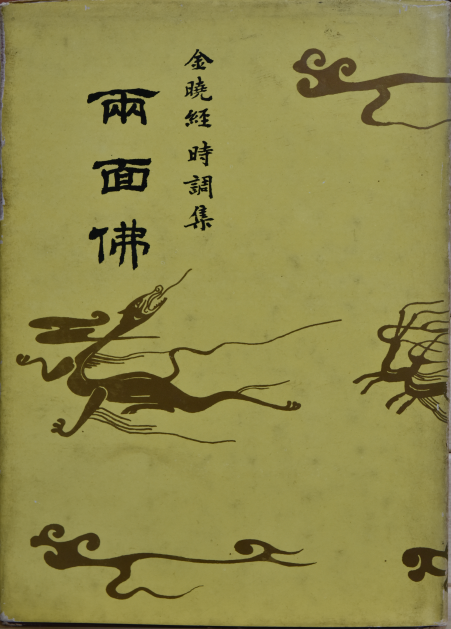 金曉經 時調集
兩面佛